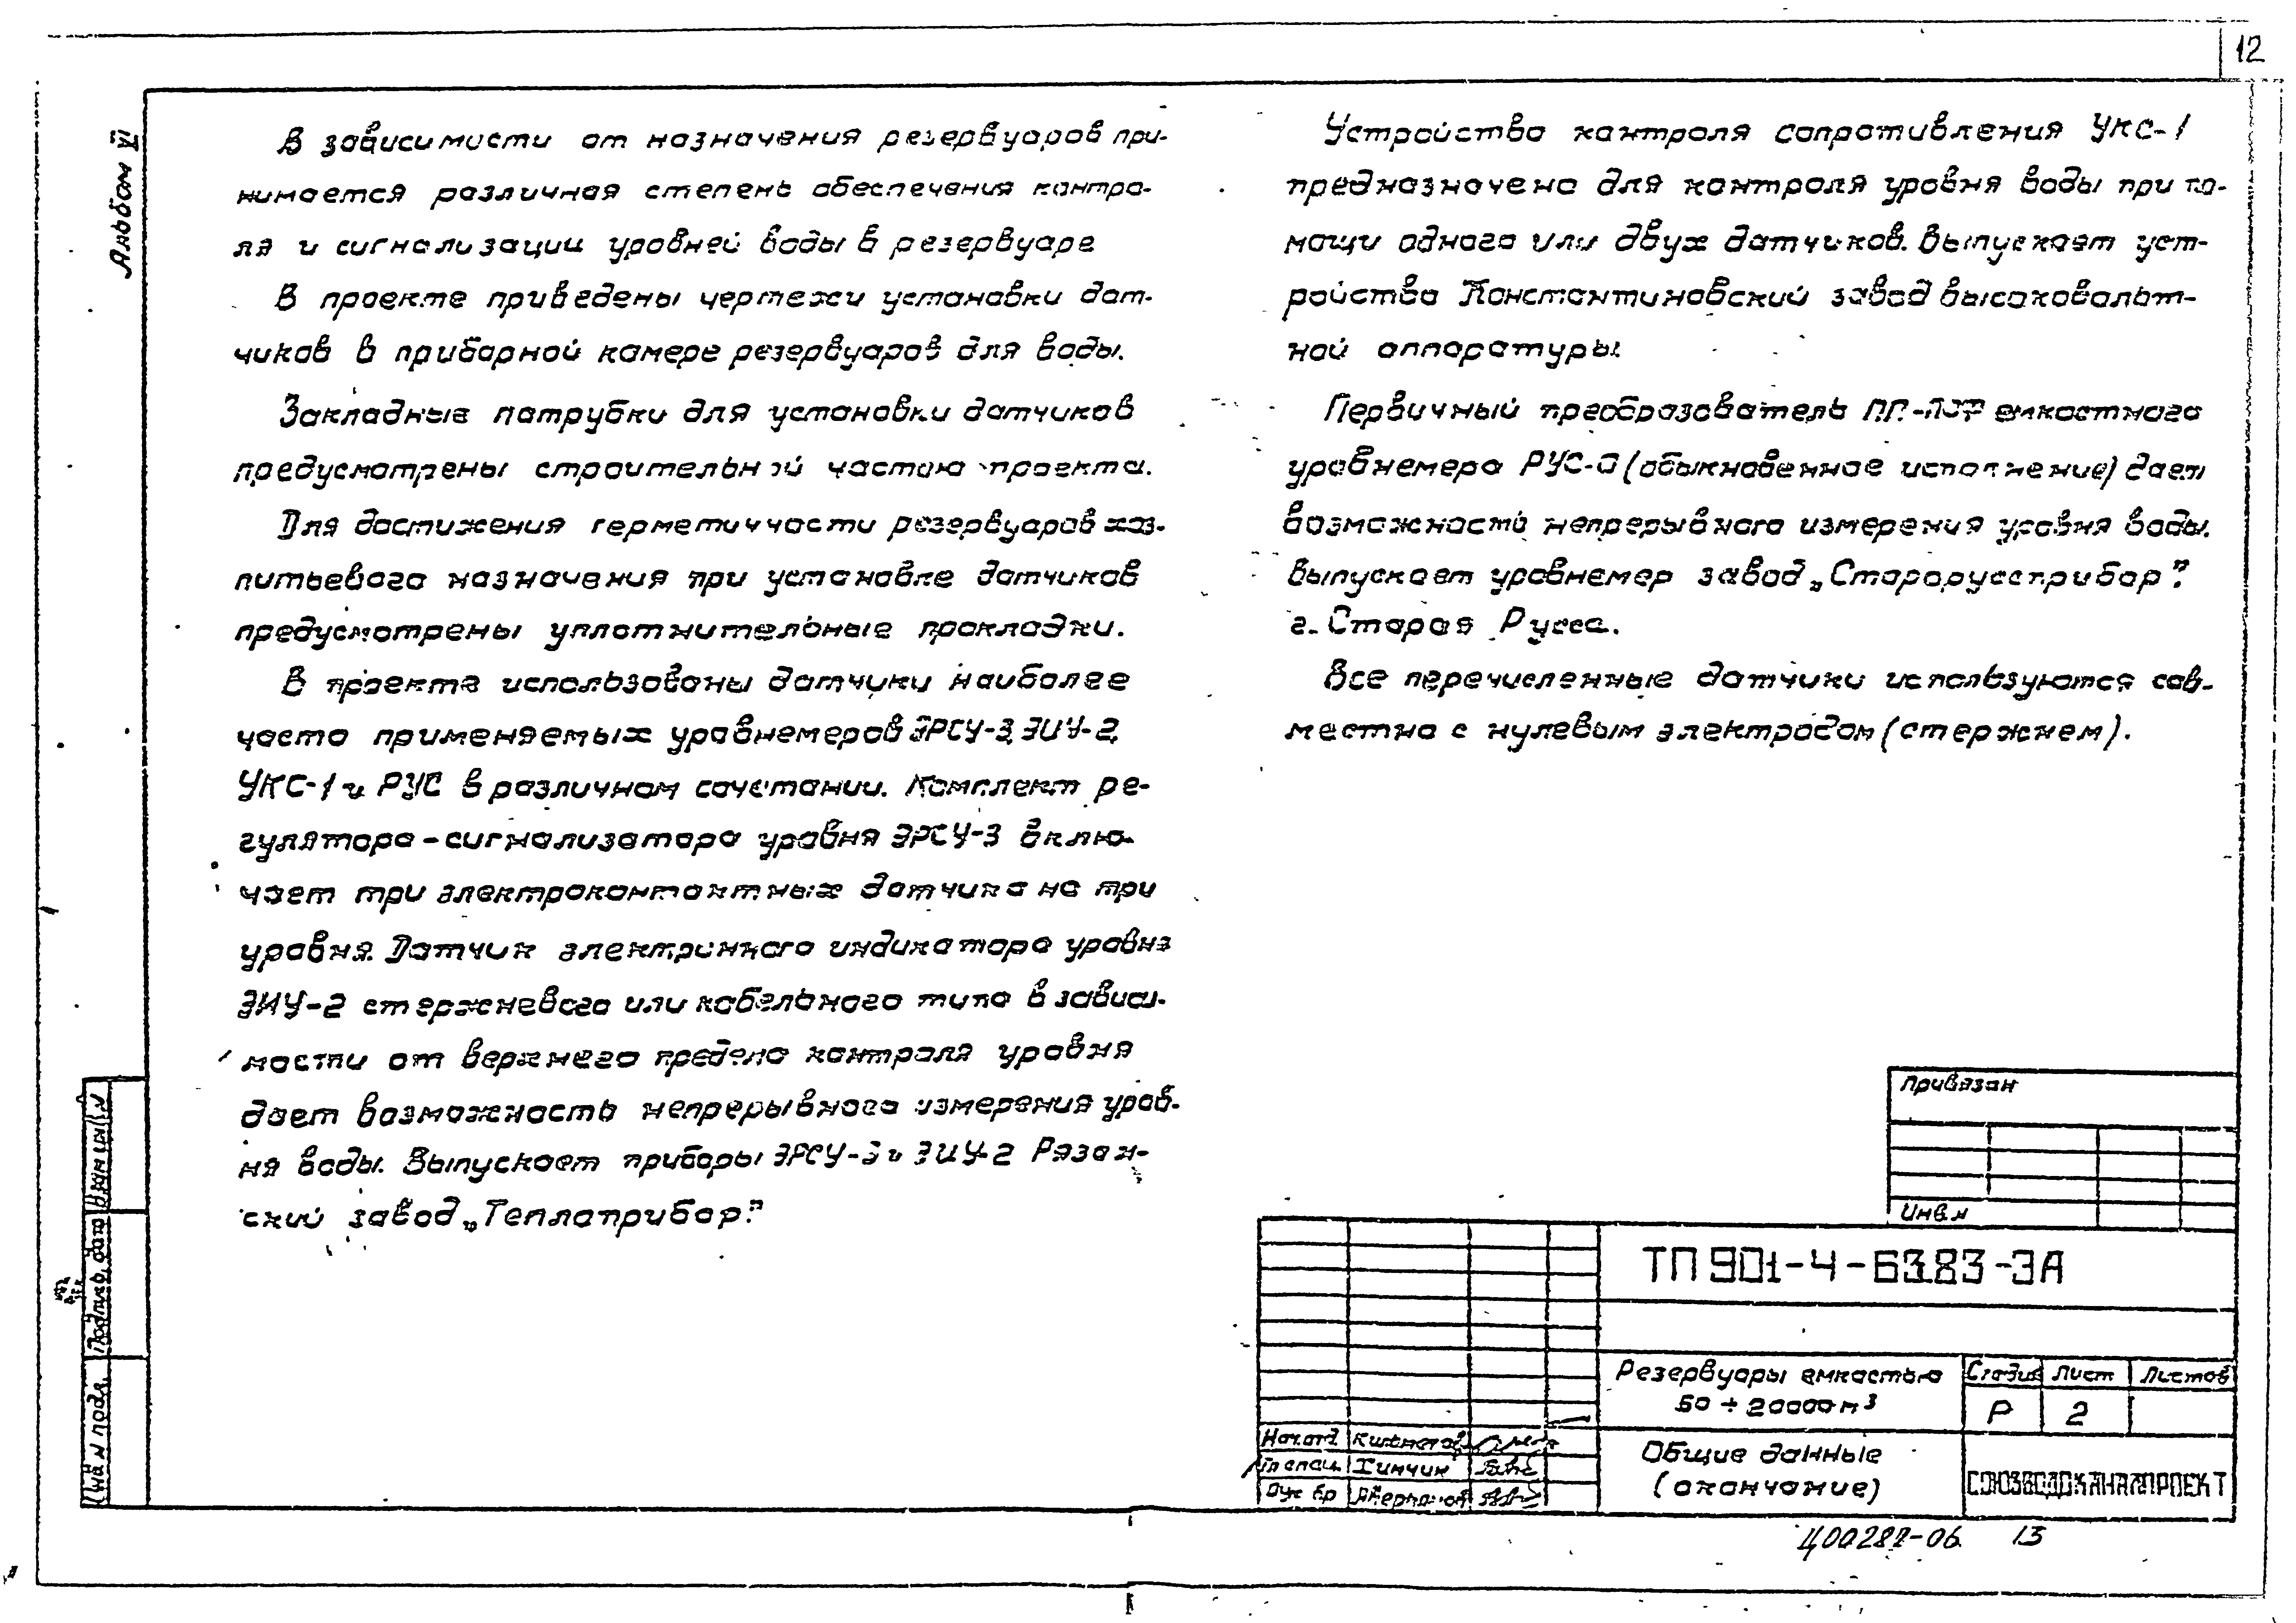 12
Альбом VI
В зависимости от назначения резервуаров при-
нимается различная степень обеспечения контро-
ля и сигнализации уровней воды в резервуаре
В проекте приведены чертежи установки дат-
чиков в приборной камере резервуаров для воды.
Закладные патрубки для установки датчиков
предусмотрены строительной частью проекта.
Для достижения герметичности резервуаров хоз-
питьевого назначения при установке датчиков
предусмотрены уплотнительные прокладки.
В проекте использованы датчики наиболее
часто применяемых уровнемеров ЭРСУ-3, ЭИУ-2,
УКС-1 и РУС в различном сочетании. Комплект ре-
гулятора-сигнализатора уровня ЭРСУ-3 вклю-
чает три электроконтактных датчика на три
уровня. Датчик электронного индикатора уровня
ЭИУ-2 стержневого или кабельного типа в зависи-
мости от верхнего предела контроля уровня
дает возможность непрерывного измерения уров-
ня воды. Выпускает приборы ЭРСУ-3 и ЭИУ-2 Рязан-
ский завод „Теплоприбор".
Устройство контроля сопротивления УКС-1
предназначено для контроля уровня воды при по-
мощи одного или двух датчиков. Выпускает уст-
ройство Константиновский завод высоковольт-
ной аппаратуры.
Первичный преобразователь емкостного
уровнемера РУС-О (обыкновенное исполнение) дает
возможность непрерывного измерения уровня воды.
Выпускает уровнемер завод „Старорусприбор".
г. Старая Русса.
Все перечисленные датчики используются сов-
местно с нулевым электродом (стержнем).
Привязан
Инв.№
ТП 901-4-63.83-ЭА
Резервуары емкостью
50 ÷ 20000 м³
Стадия Лист Листов
Р 2
Общие данные
(окончание)
СОЮЗВОДОКАНАЛПРОЕКТ
Нач.отд.
Гл спец. Хинчин
Рук бр
Инв № подл. Подпись, дата
13